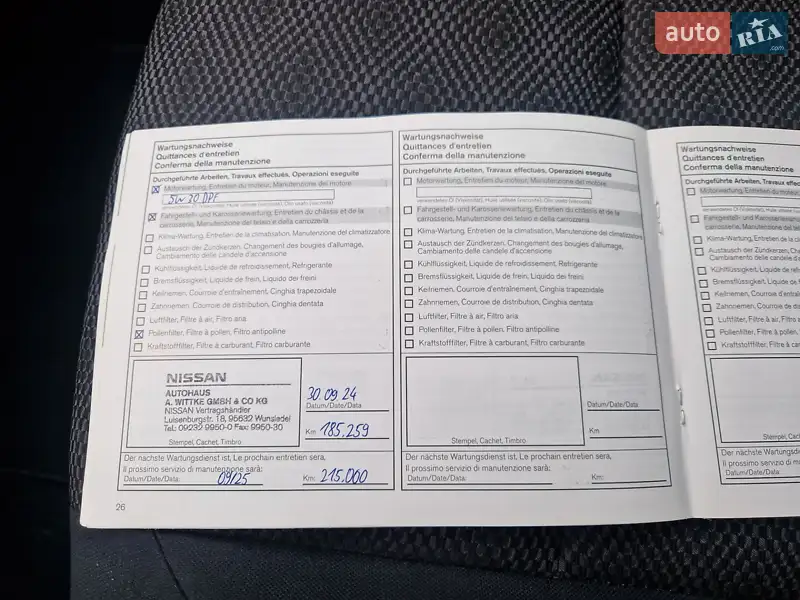 auto RIA .com
Wartungsnachweise
Quittances d'entretien
Conferma della manutenzione
Durchgeführte Arbeiten, Travaux effectués, Operazioni eseguite
Motorwartung, Entretien du moteur, Manutenzione del motore
5W30 DPF
Verwendetes Öl (Viskosität), Huile utilisée (viscosité), Olio usato (viscosità)
Fahrgestell- und Karosseriewartung, Entretien du châssis et de la
carrosserie, Manutenzione del telaio e della carrozzeria
Klima-Wartung, Entretien de la climatisation, Manutenzione del climatizzatore
Austausch der Zündkerzen, Changement des bougies d'allumage,
Cambiamento delle candele d'accensione
Kühlflüssigkeit, Liquide de refroidissement, Refrigerante
Bremsflüssigkeit, Liquide de frein, Liquido dei freini
Keilriemen, Courroie d'entraînement, Cinghia trapezoidale
Zahnriemen, Courroie de distribution, Cinghia dentata
Luftfilter, Filtre à air, Filtro aria
Pollenfilter, Filtre à pollen, Filtro antipolline
Kraftstofffilter, Filtre à carburant, Filtro carburante
NISSAN
AUTOHAUS
A. WITTKE GMBH & CO KG
NISSAN Vertragshändler
Luisenburgstr. 18, 95632 Wunsiedel
Tel.: 09232 9950-0 Fax: 9950-30
Stempel, Cachet, Timbro
30.09.24
Datum/Date/Data
Km 185.259
Der nächste Wartungsdienst ist, Le prochain entretien sera,
Il prossimo servizio di manutenzione sarà:
Datum/Date/Data: 09/25 Km: 215.000
26
Wartungsnachweise
Quittances d'entretien
Conferma della manutenzione
Durchgeführte Arbeiten, Travaux effectués, Operazioni eseguite
Motorwartung, Entretien du moteur, Manutenzione del motore
Verwendetes Öl (Viskosität), Huile utilisée (viscosité), Olio usato (viscosità)
Fahrgestell- und Karosseriewartung, Entretien du châssis et de la
carrosserie, Manutenzione del telaio e della carrozzeria
Klima-Wartung, Entretien de la climatisation, Manutenzione del climatizzatore
Austausch der Zündkerzen, Changement des bougies d'allumage,
Cambiamento delle candele d'accensione
Kühlflüssigkeit, Liquide de refroidissement, Refrigerante
Bremsflüssigkeit, Liquide de frein, Liquido dei freini
Keilriemen, Courroie d'entraînement, Cinghia trapezoidale
Zahnriemen, Courroie de distribution, Cinghia dentata
Luftfilter, Filtre à air, Filtro aria
Pollenfilter, Filtre à pollen, Filtro antipolline
Kraftstofffilter, Filtre à carburant, Filtro carburante
Stempel, Cachet, Timbro
Datum/Date/Data
Km
Der nächste Wartungsdienst ist, Le prochain entretien sera,
Il prossimo servizio di manutenzione sarà:
Datum/Date/Data: Km:
Wartungsnachweise
Quittances d'entretien
Conferma della manutenzione
Durchgeführte Arbeiten, Travaux
Motorwartung, Entretien du moteur,
Verwendetes Öl (Viskosität), Huile utilisée
Fahrgestell- und Karosseriewartung
carrosserie, Manutenzione del
Klima-Wartung, Entretien de la
Austausch der Zündkerzen,
Cambiamento delle candele
Kühlflüssigkeit, Liquide de
Bremsflüssigkeit, Liquide de
Keilriemen, Courroie
Zahnriemen, Courroie de
Luftfilter, Filtre à air,
Pollenfilter, Filtre à
Kraftstofffilter, Filtre à
Stempel,
Der nächste Wartungsdienst ist,
Il prossimo servizio di
Datum/Date/Data: